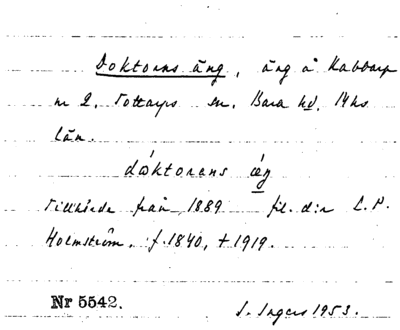 Doktorns äng, äng å Kabbarp
nr 2, Tottarps sn, Bara hd, Mhs
län.
dåktorens äŋ
Tillhörde från 1889 fil. d:r L.P.
Holmström. f. 1840, † 1919.
Nr 5542. I. Ingers 1953.